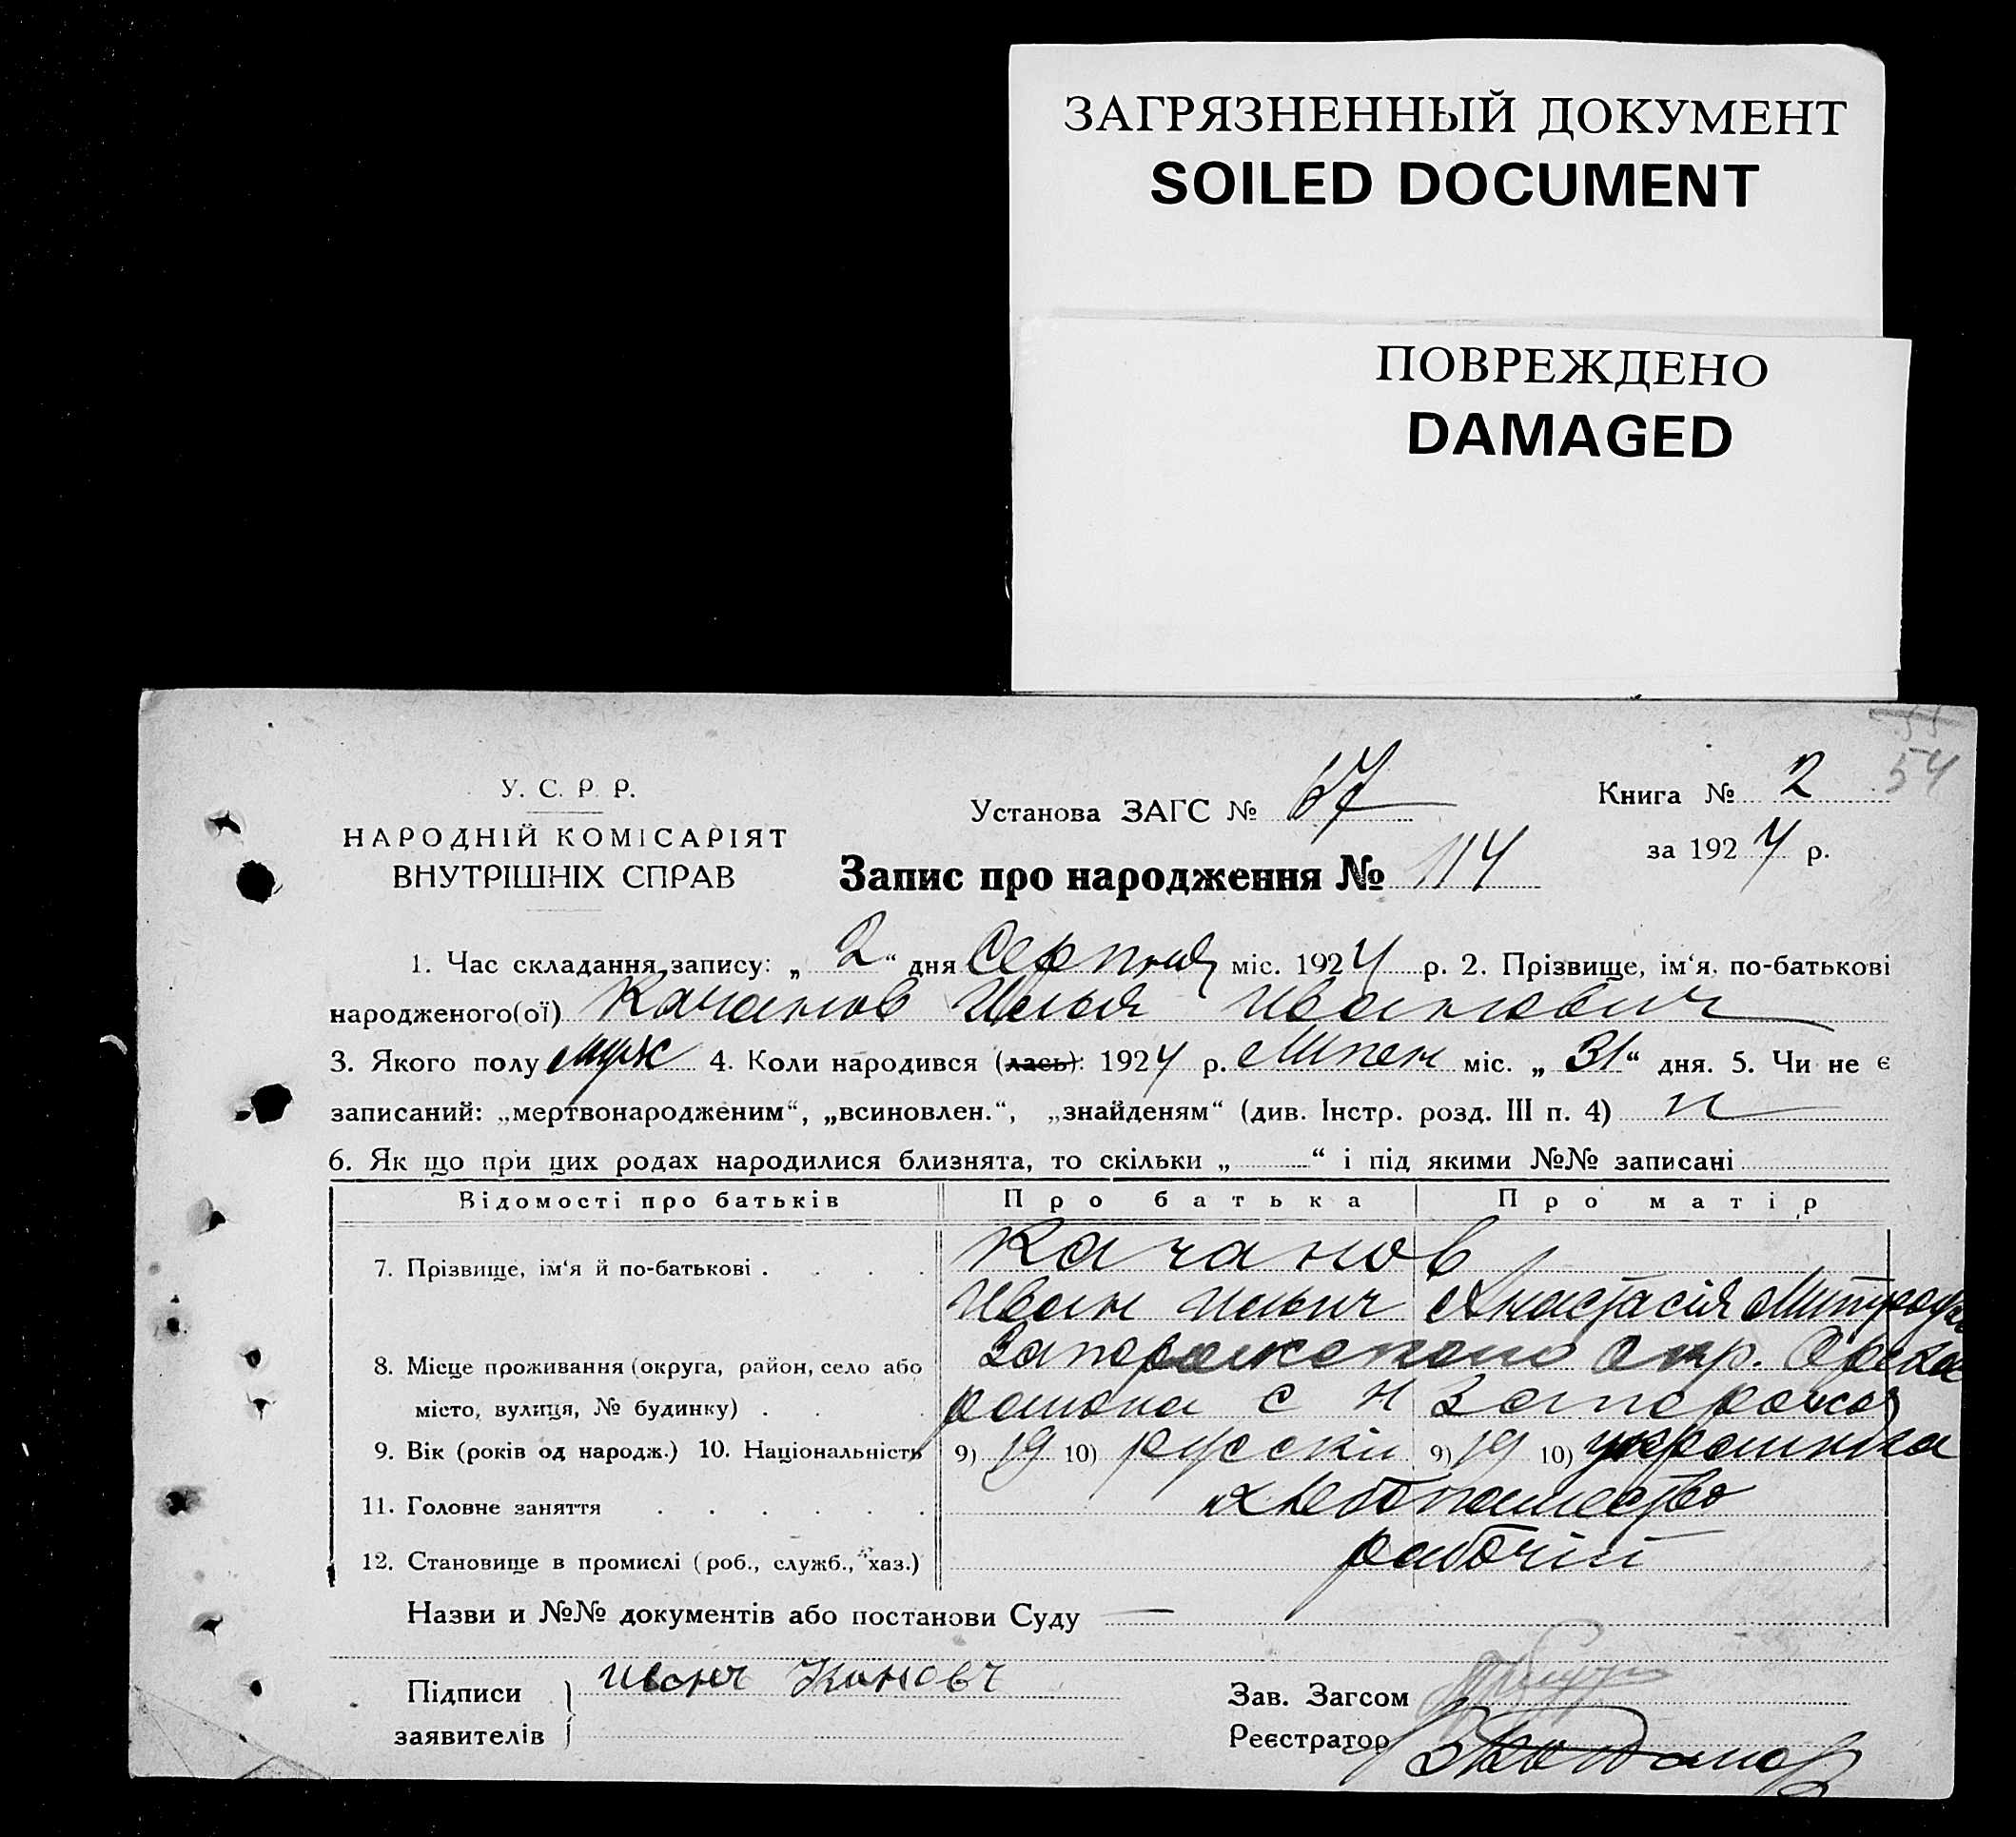 ЗАГРЯЗНЕННЫЙ ДОКУМЕНТ
SOILED DOCUMENT
ПОВРЕЖДЕНО
DAMAGED
54
У. С. Р. Р.
НАРОДНІЙ КОМІСАРІЯТ
ВНУТРІШНІХ СПРАВ
Установа ЗАГС № 67
Книга № 2
за 1924 р.
Запис про народження № 114
1. Час складання запису: „2“ дня Серпня міс. 1924 р. 2. Прізвище, ім‘я, по-батькові
народженого(ої) Качанов Илья Иванович
3. Якого полу муж 4. Коли народився (лась): 1924 р. Липен міс. „31“ дня. 5. Чи не є
записаний: „мертвонародженим“, „всиновлен.“, „знайденям“ (див. Інстр. розд. III п. 4) н
6. Як що при цих родах народилися близнята, то скільки „ “ і під якими №№ записані
Відомості про батьків Про батька Про матір
7. Прізвище, ім‘я й по-батькові . . . . Качанов
Иван Ильич Анастасія
8. Місце проживання (округа, район, село або Запорожского окр.
місто, вулиця, № будинку) . . . района с Н Запорожья
9. Вік (років од народж.) 10. Національність 9) 19 10) русскій 9) 19 10) украинка
11. Головне заняття . . . . . . хлебопашество
12. Становище в промислі (роб., служб., хаз.) рабочій
Назви и №№ документів або постанови Суду —
Підписи
заявителів
Иванъ
Зав. Загсом
Реєстратор